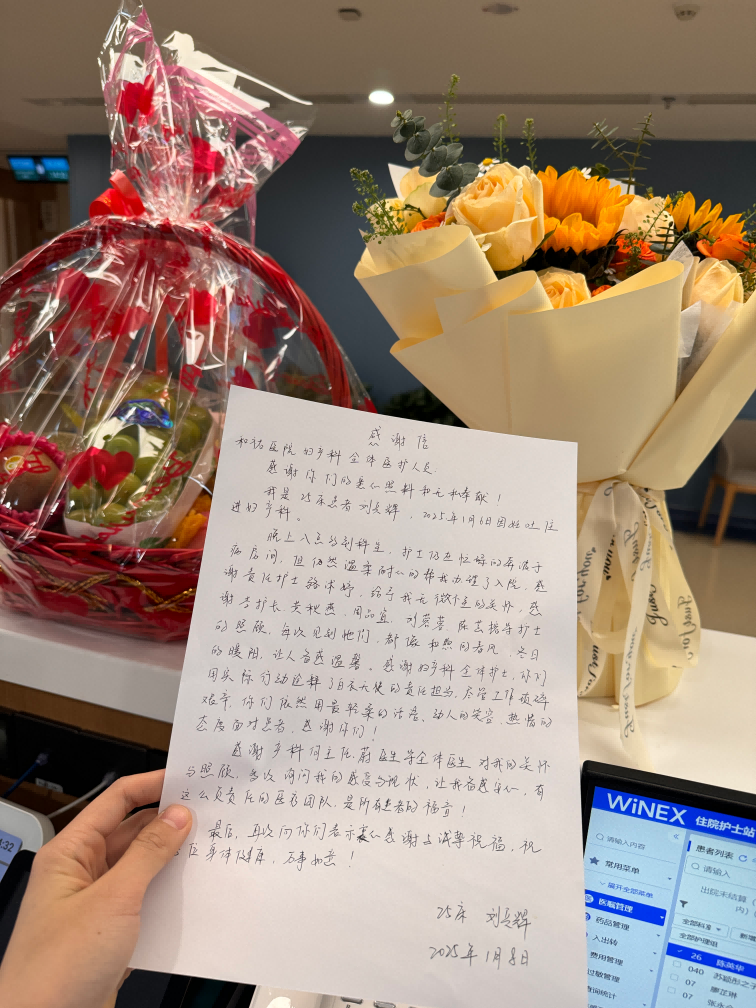 感谢信
和祐医院妇产科全体医护人员:
感谢你们的悉心照料和无私奉献!
我是25床患者刘良辉,2025年1月6日因妊吐住
进妇产科。
晚上八点的到科室,护士仍在忙碌的奔波于
病房间,但仍然温柔耐心的帮我办理了入院,感
谢责任护士骆沐婷,给予我无微不至的关怀,感
谢李护长、黄秋燕、周品宜、刘蓉蓉、陈芸指等护士
的照顾,每次见到她们,都像和煦的春风,冬日
的暖阳,让人备感温馨。感谢妇产科全体护士,你们
用实际行动诠释了白衣天使的责任担当,尽管工作琐碎
艰辛,你们依然用最轻柔的话音、动人的笑容、热情的
态度面对患者,感谢你们!
感谢产科何主任、蔚医生等全体医生对我的关怀
与照顾,每次询问我的感受与现状,让我备感安心,有
这么负责任的医疗团队,是所有患者的福音!
最后,再次向你们表示衷心感谢与诚挚祝福,祝
位身体健康,万事如意!
25床 刘良辉
2025年1月8日
Just for you
WiNEX 住院护士站
请输入内容
常用菜单
展开全部菜单
医嘱管理
药品管理
入出转
费用管理
过敏管理
查询统计
患者列表
请输入
出院未结算(
内)
全部科室
全部护理组
26 陈英华
040 苏颖彤之
07 廖芷琳
07 张永